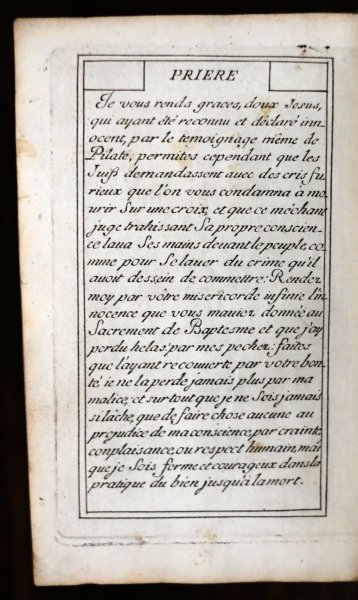 PRIERE
Je vous rends graces, doux Jesus,
qui ayant été reconnu et déclaré inn-
ocent, par le temoignage même de
Pilate, permites cependant que les
Juifß demandassent avec des cris fu-
rieux que l'on vous condamna à mo-
urir Sur une croix, et que ce méchant
juge trahissant Sa propre conscien-
ce lava Ses mains devant le peuple, co-
mme pour Se laver du crime qu'il
avoit dessein de commettre: Rendez
moy par vôtre misericorde infinie l'in-
nocence que vous m'aviez donnée au
Sacrement de Baptesme et que j'ay
perdu helas! par mes pechez: faites
que l'ayant recouverte par votre bon-
té ie ne la perde jamais plus par ma
malice, et sur tout que je ne Sois jamais
si lâche, que de faire chose aucune au
prejudice de ma conscience, par crainte,
conplaisance, ou respect humain, mais
que je Sois ferme et courageux dans la
pratique du bien jusqu'à la mort.